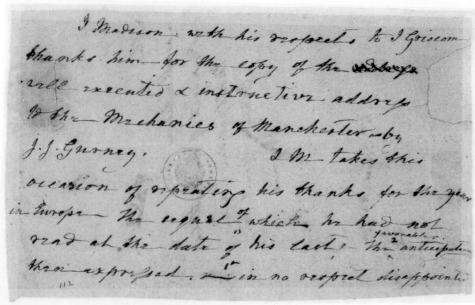 J Madison with his respects to J Griscom
thanks him for the copy of the
well executed & instructive address
to the Mechanics of Manchester by
J. J. Gurney. J M takes this
occasion of repeating his thanks for the year
in Europe the sequel of which he had not
read at the date of his last; the favorable anticipate
then expressed in no respect disappointed